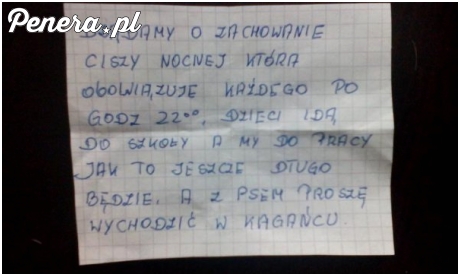 Penera.pl
O ZACHOWANIE
CISZY NOCNEJ KTÓRA
OBOWIĄZUJE KAŻDEGO PO
GODZ 22⁰⁰. DZIECI IDĄ
DO SZKOŁY A MY DO PRACY
JAK TO JESZCZE DŁUGO
BĘDZIE. A Z PSEM PROSZĘ
WYCHODZIĆ W KAGAŃCU.